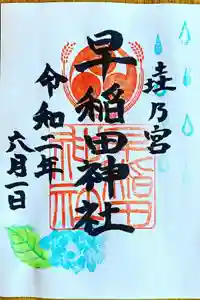 圭乃宮
早稲田神社
令和二年
六月一日